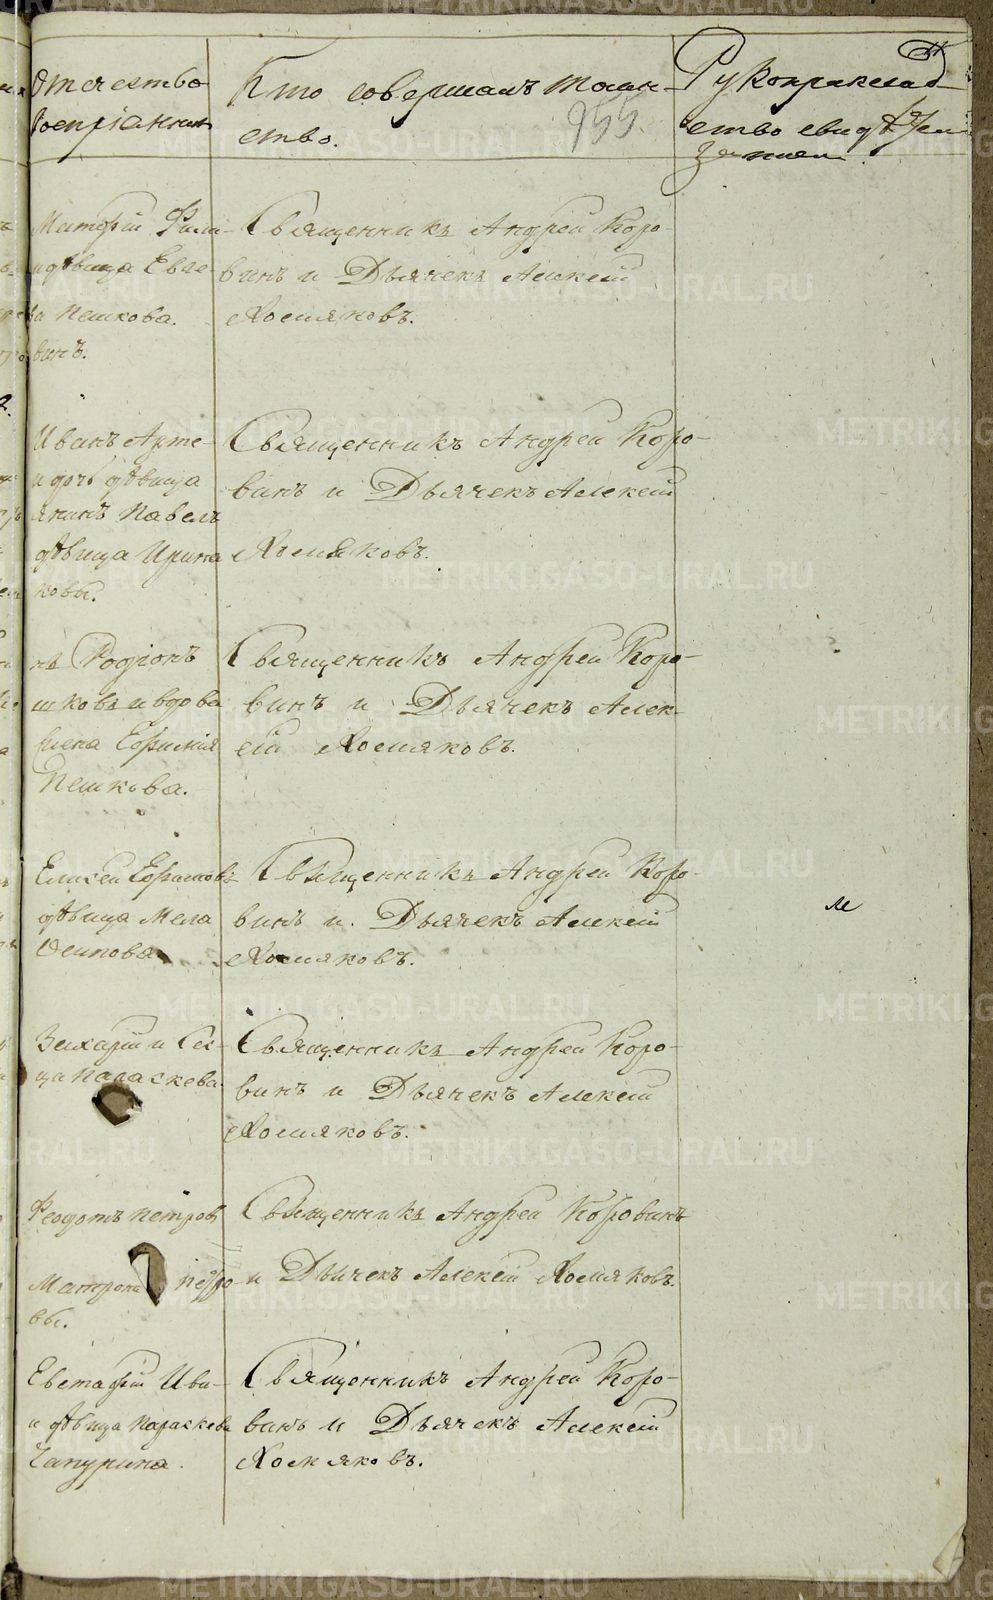 Отечество
воспріемник
Кто совершалъ таин-
ство.
955
Рукоприклад
ство свидѣтел
Митрофій Фили-
и дѣвица Евге-
Пешкова.
винъ.
Священникъ Андрей Коро-
винъ и Дьячекъ Алексей
Хомяковъ.
Иванъ Арте-
и дочь дѣвица
Павелъ
дѣвица Ирина
ковы.
Священникъ Андрей Коро-
винъ и Дьячекъ Алексей
Хомяковъ.
Родіонъ
шковъ и вдова
Ефимія
Пешкова.
Священникъ Андрей Коро-
винъ и Дьячекъ Алек-
сей Хомяковъ.
Елисей Ефимовъ
дѣвица Мела
Осипова
Священникъ Андрей Коро-
винъ и. Дьячекъ Алексей
Хомяковъ.
м
Захарій и Сес-
ца Параскева
Священникъ Андрей Коро-
винъ и Дьячекъ Алексей
Хомяковъ.
Феодотъ петров
Матрена петро
вы.
Священникъ Андрей Коровинъ
и Дьячекъ Алексей Хомяковъ
Евстафій Ива-
и дѣвица Параскева
Чапурина.
Священникъ Андрей Коро-
винъ и Дьячекъ Алексей
Хомяковъ.
METRIKI.GASO-URAL.RU